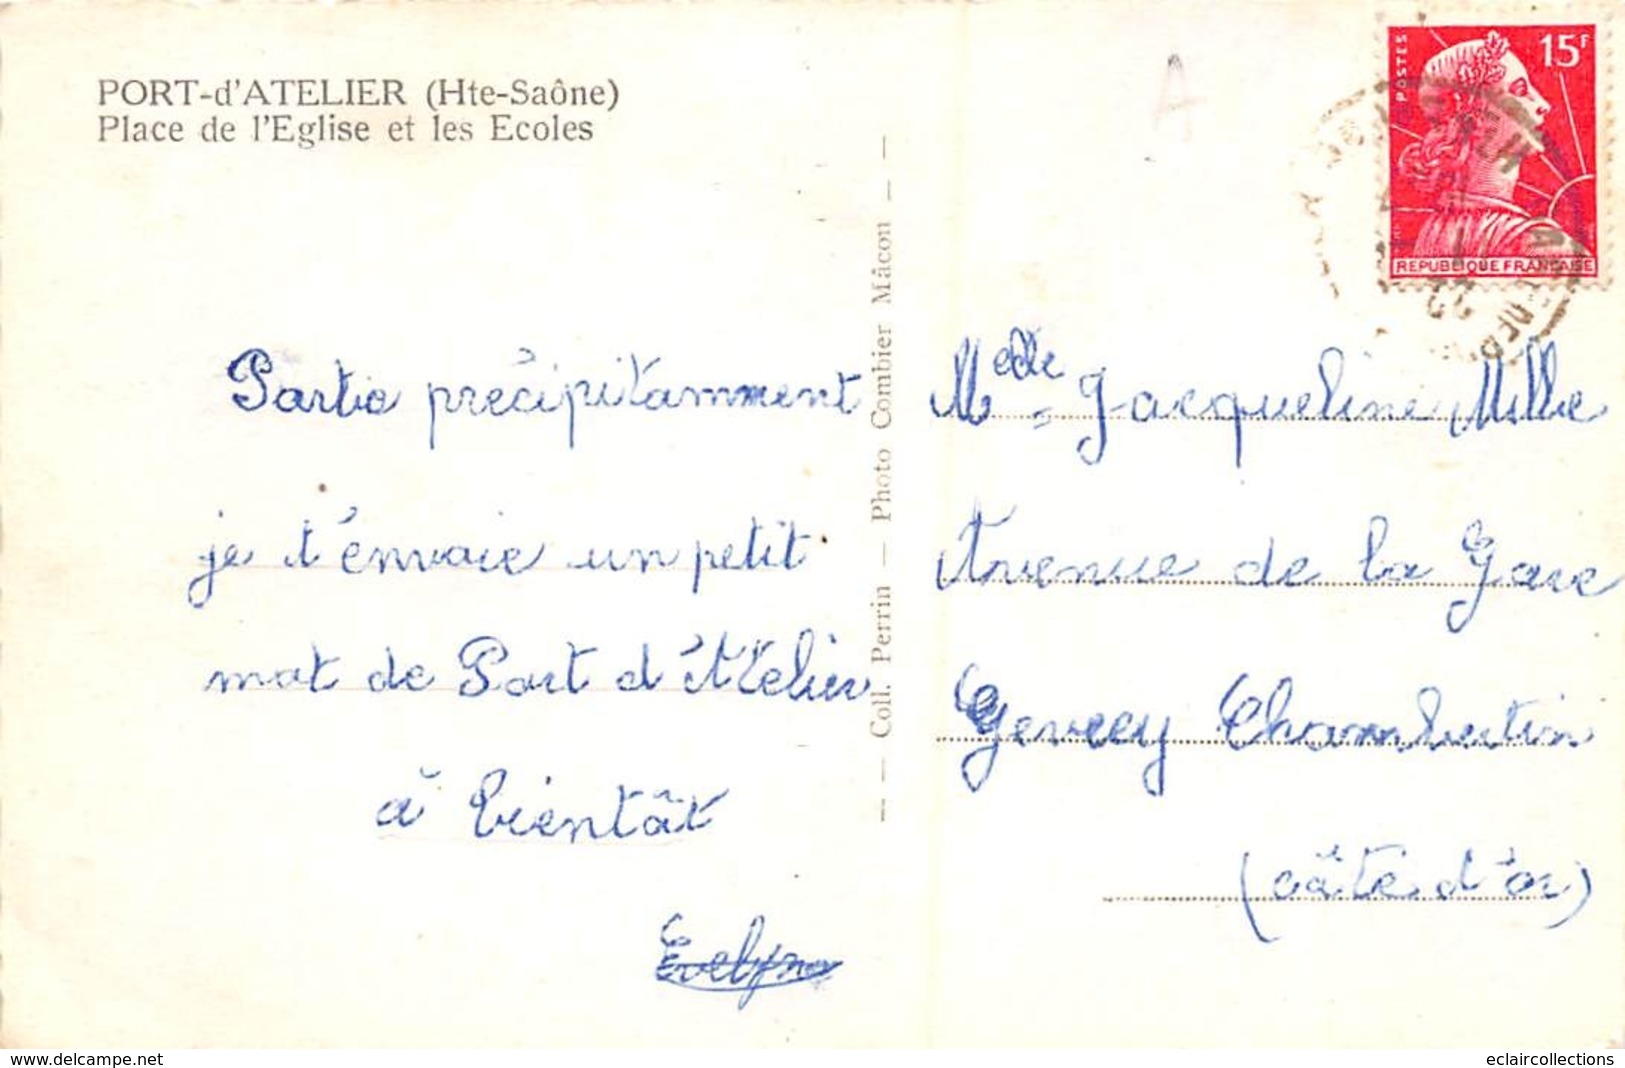 PORT-d'ATELIER (Hte-Saône)
Place de l'Eglise et les Ecoles
Partie précipitamment
je t'envoie un petit
mot de Port d'Atelier
à bientôt
Evelyne
— Coll. Perrin — Photo Combier Mâcon —
A
POSTES
15F
REPUBLIQUE FRANÇAISE
Melle Jacqueline Mille
Avenue de la Gare
Gevrey Chambertin
(côte d'or)
www.delcampe.net
eclaircollections